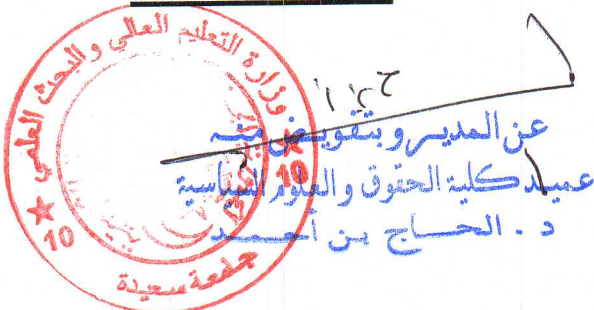 وزارة التعليم العالي والبحث العلمي
جامعة سعيدة
10
10
عن المدير و بتفويض منه
عميد كلية الحقوق و العلوم السياسية
د . الحاج بن أحمد